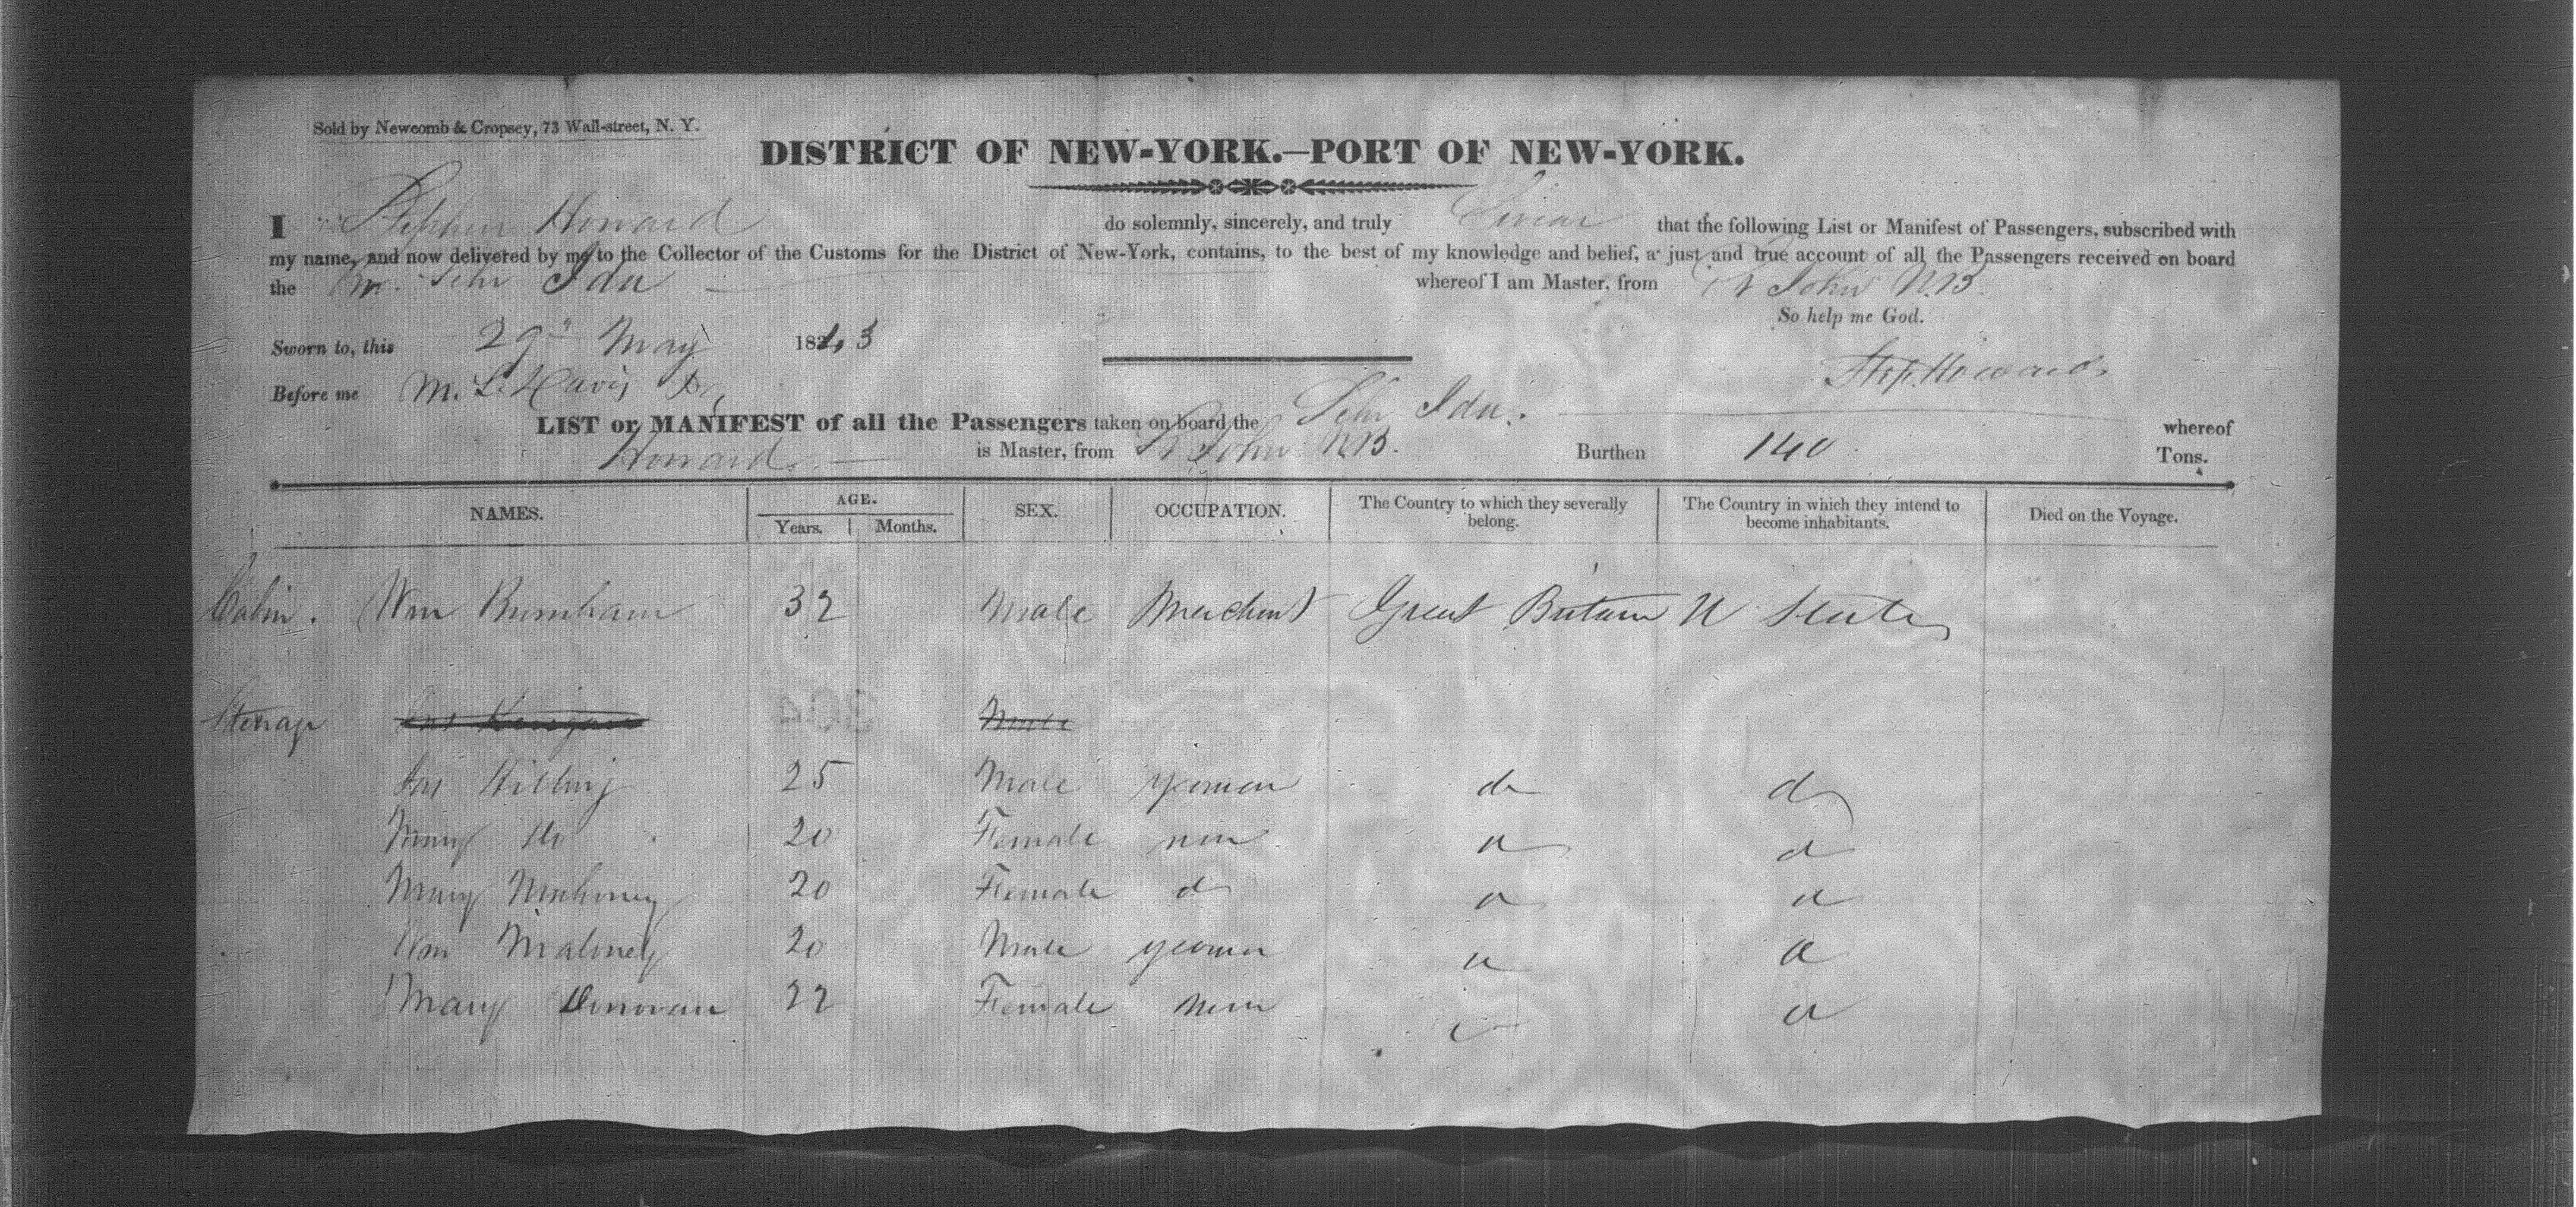 Sold by Newcomb & Cropsey, 73 Wall-street, N. Y.
DISTRICT OF NEW-YORK.—PORT OF NEW-YORK.
I Stephen Howard do solemnly, sincerely, and truly Swear that the following List or Manifest of Passengers, subscribed with
my name, and now delivered by me to the Collector of the Customs for the District of New-York, contains, to the best of my knowledge and belief, a just and true account of all the Passengers received on board
the Br. Schr Ida whereof I am Master, from St John NB
So help me God.
Sworn to, this 29th May 1843
Step. Howard
Before me M. L. Davis
LIST or MANIFEST of all the Passengers taken on board the Schr Ida. whereof
Howard is Master, from St John NB. Burthen 140 Tons.
NAMES. AGE. SEX. OCCUPATION. The Country to which they severally belong. The Country in which they intend to become inhabitants. Died on the Voyage.
Years. Months.
Cabin. Wm Burnham 32 Male Merchant Great Britain U States
Steerage Male
Jas 25 Male yeoman do do
Mary Do 20 Female non do do
Mary Mahoney 20 Female do do do
Wm Maloney 20 Male yeoman do do
Mary Donovan 22 Female non do do